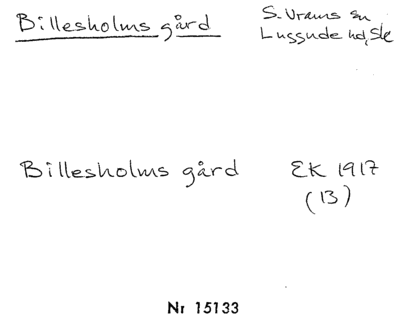 Billesholms gård
S. Vrams sn
Luggude hd, Sk
Billesholms gård
EK 1917
(13)
Nr 15133